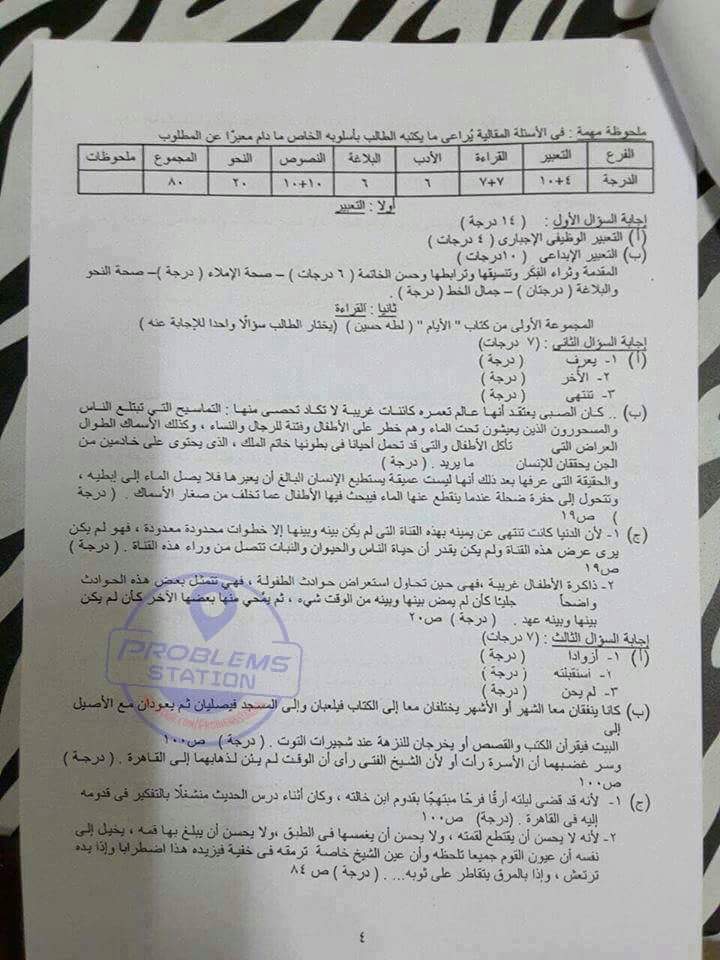 ملحوظة مهمة : في الأسئلة المقالية يُراعى ما يكتبه الطالب بأسلوبه الخاص ما دام معبرًا عن المطلوب
الفرع التعبير القراءة الأدب البلاغة النصوص النحو المجموع ملحوظات
الدرجة ٤+١٠ ٧+٧ ٦ ٦ ١٠+١٠ ٢٠ ٨٠
أولا : التعبير
إجابة السؤال الأول : ( ١٤ درجة )
(أ) التعبير الوظيفى الإجبارى ( ٤ درجات )
(ب) التعبير الإبداعى ( ١٠درجات )
المقدمة وثراء الفِكر وتنسيقها وترابطها وحسن الخاتمة ( ٦ درجات ) – صحة الإملاء ( درجة )– صحة النحو
والبلاغة ( درجتان ) – جمال الخط ( درجة ) .
ثانيا : القراءة
المجموعة الأولى من كتاب " الأيام " ( لطه حسين ) (يختار الطالب سؤالًا واحدا للإجابة عنه )
إجابة السؤال الثانى : (٧ درجات)
(أ) ١- يعرف ( درجة )
٢- الأُخر ( درجة )
٣- تنتهى ( درجة )
(ب) .. كان الصبى يعتقد أنها عالم تعمره كائنات غريبة لا تكاد تحصى منها : التماسيح التى تبتلع الناس
والمسحورون الذين يعيشون تحت الماء وهم خطر على الأطفال وفتنة للرجال والنساء ، وكذلك الأسماك الطوال
العراض التى تأكل الأطفال والتى قد تحمل أحيانا فى بطونها خاتم الملك ، الذى يحتوى على خادمين من
الجن يحققان للإنسان ما يريد . ( درجة )
والحقيقة التى عرفها بعد ذلك أنها ليست عميقة يستطيع الإنسان البالغ أن يعبرها فلا يصل الماء إلى إبطيه ،
وتتحول إلى حفرة ضحلة عندما ينقطع عنها الماء فيبحث فيها الأطفال عما تخلف من صغار الأسماك . ( درجة
) ص١٩
(ج) ١- لأن الدنيا كانت تنتهى عن يمينه بهذه القناة التى لم يكن بينه وبينها إلا خطوات محدودة معدودة ، فهو لم يكن
يرى عرض هذه القناة ولم يكن يقدر أن حياة الناس والحيوان والنبات تتصل من وراء هذه القناة . ( درجة )
ص١٩
٢- ذاكرة الأطفال غريبة ،فهى حين تحاول استعراض حوادث الطفولة ، فهى تتمثل بعض هذه الحوادث
واضحاً جليًا كأن لم يمض بينها وبينه من الوقت شيء ، ثم يمُحي منها بعضها الآخر كأن لم يكن
بينها وبينه عهد . ( درجة ) ص٢٠
إجابة السؤال الثالث : (٧ درجات)
(أ) ١- أزوادا ( درجة )
٢- استقبلته ( درجة )
٣- لم يحن ( درجة )
(ب) كانا ينفقان معا الشهر أو الأشهر يختلفان معا إلى الكتاب فيلعبان وإلى المسجد فيصليان ثم يعودان مع الأصيل
إلى
البيت فيقرآن الكتب والقصص أو يخرجان للنزهة عند شجيرات التوت . ( درجة ) ص١٠٠
وسر غضبهما أن الأسرة رأت أو لأن الشيخ الفتى رأى أن الوقت لم يئن لذهابهما إلى القاهرة . ( درجة )
ص١٠٠
(ج) ١- لأنه قد قضى ليلته أرقًا فرحًا مبتهجًا بقدوم ابن خالته ، وكان أثناء درس الحديث منشغلًا بالتفكير فى قدومه
إليه فى القاهرة . (درجة) ص١٠٠
٢- لأنه لا يحسن أن يقتطع لقمته ، ولا يحسن أن يغمسها فى الطبق ،ولا يحسن أن يبلغ بها فمه ، يخيل إلى
نفسه أن عيون القوم جميعا تلحظه وأن عين الشيخ خاصة ترمقه فى خفية فيزيده هذا اضطرابا وإذا يده
ترتعش ، وإذا بالمرق يتقاطر على ثوبه... . ( درجة ) ص ٨٤
٤
PROBLEMS
STATION